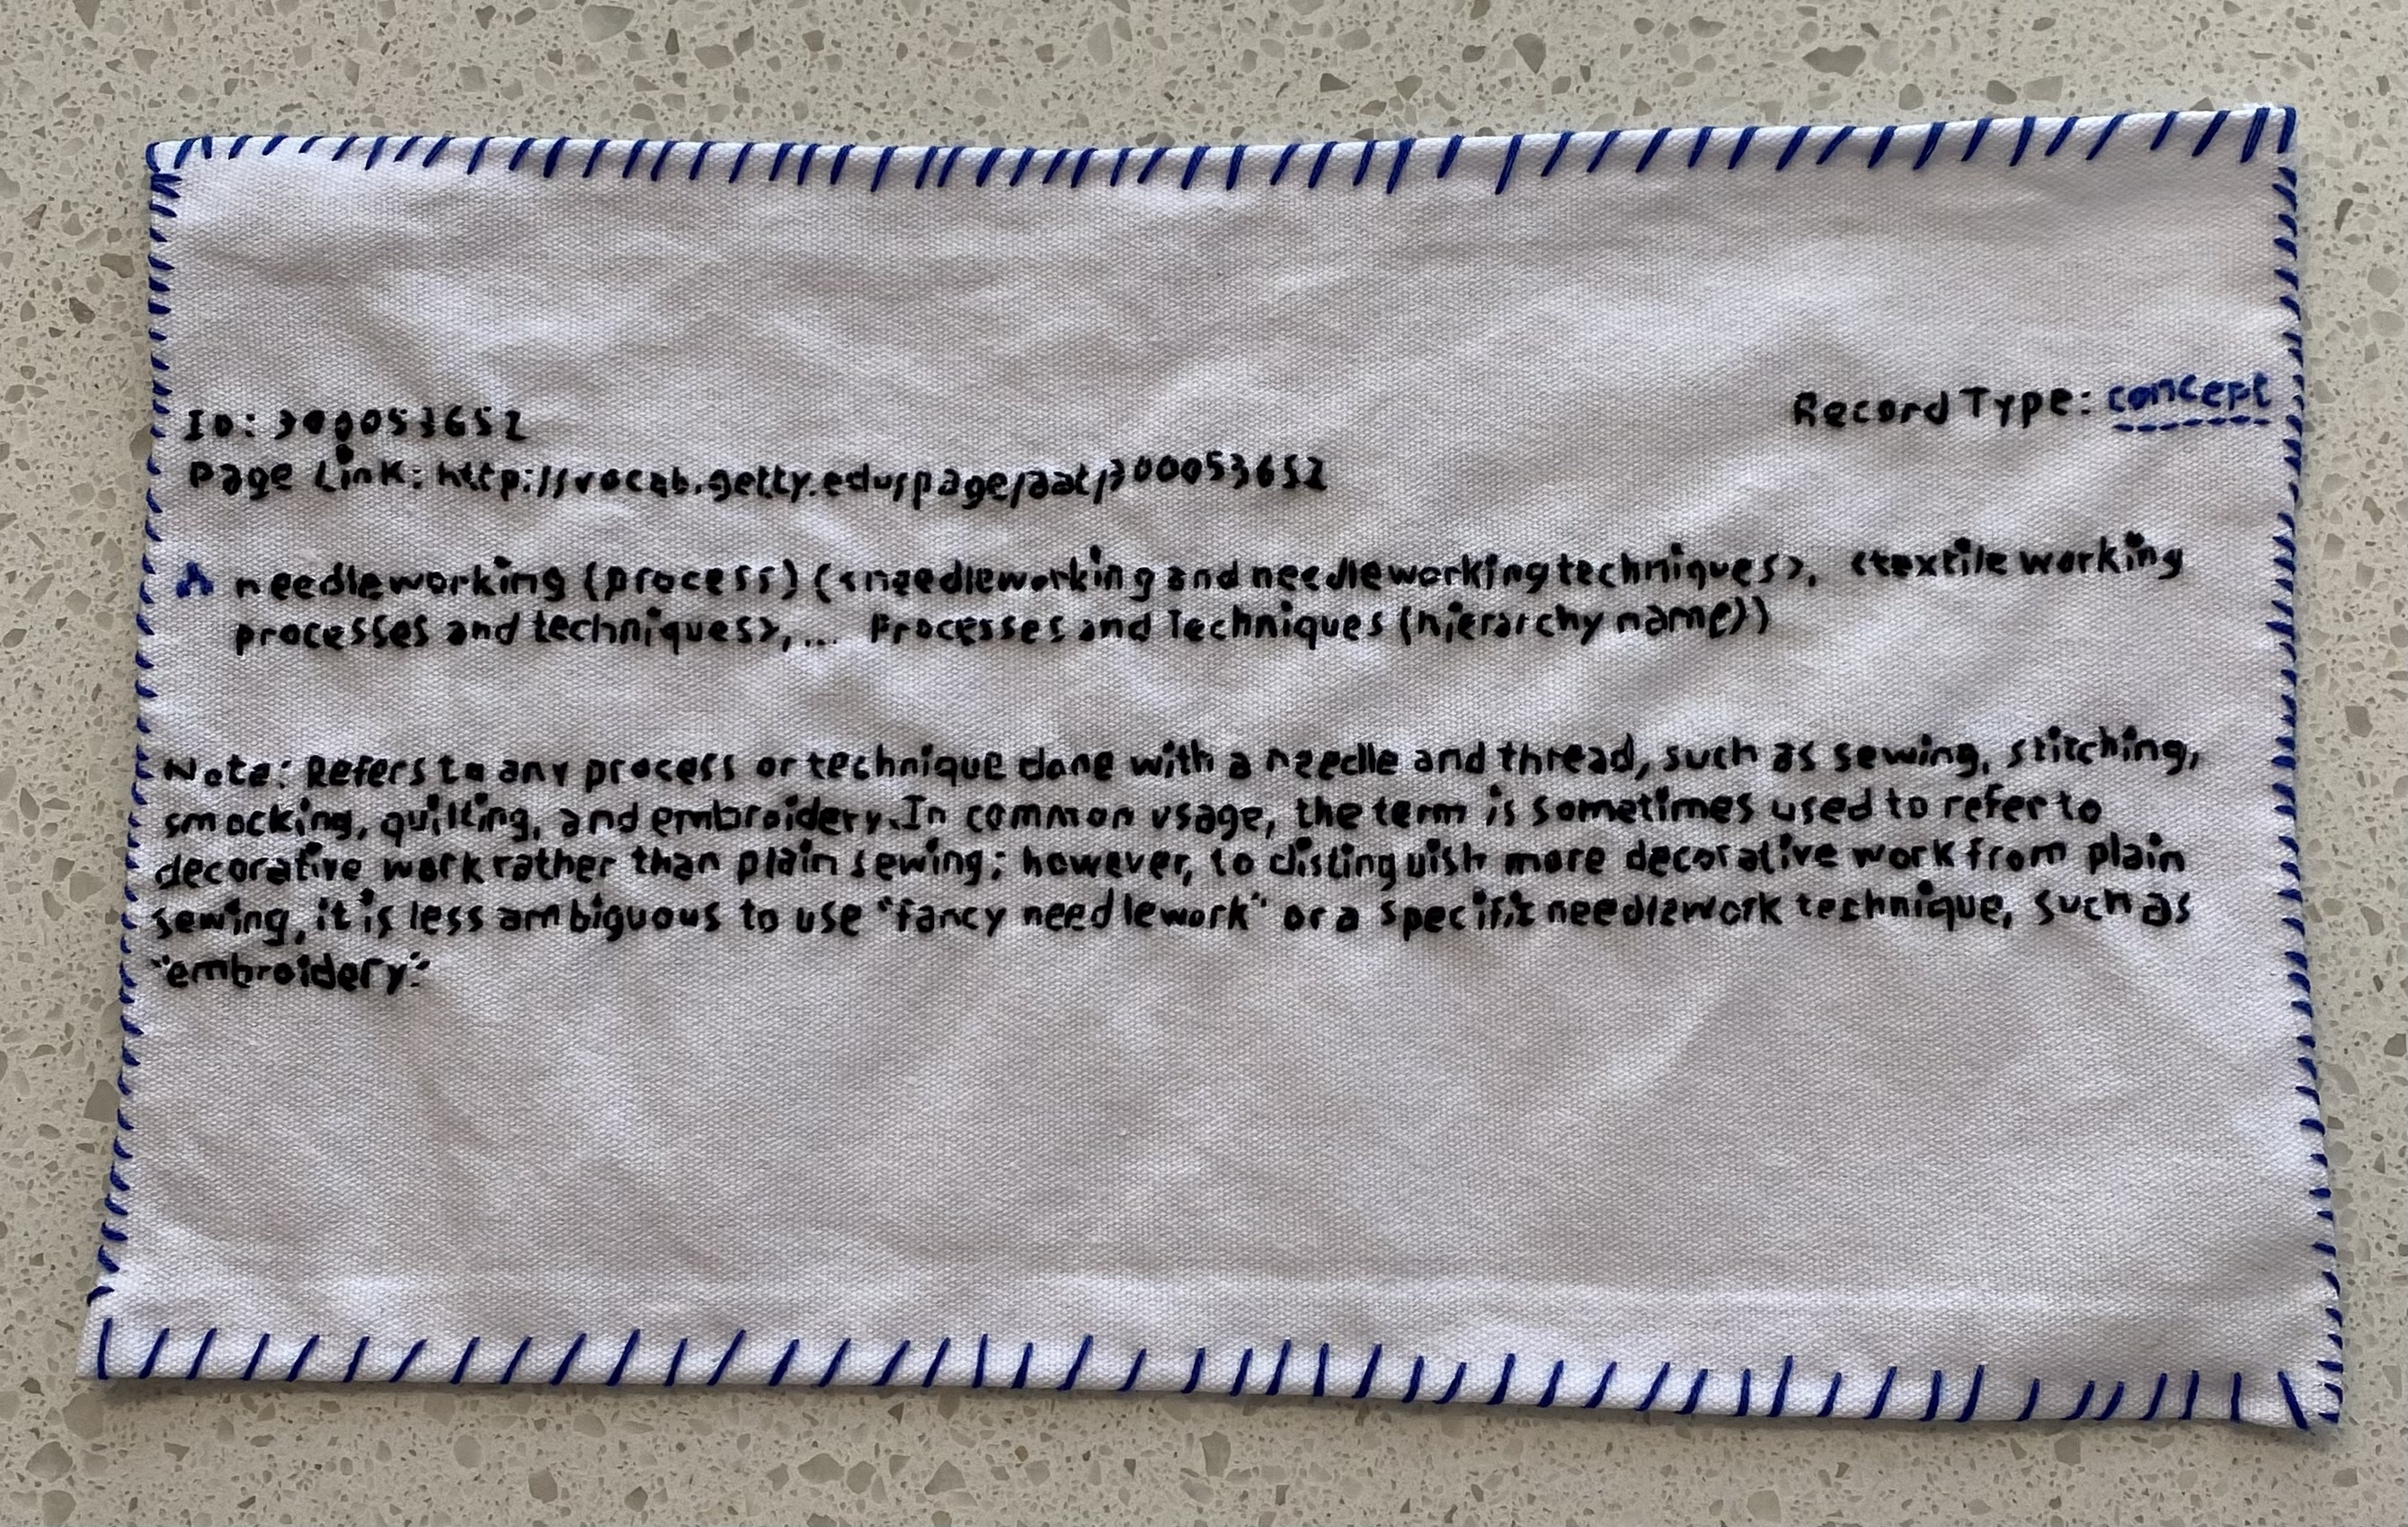 ID: 300053652
Record Type: concept
Page Link: http://vocab.getty.edu/page/aat/300053652
needleworking (process) (<needleworking and needleworking techniques>, <textile working
processes and techniques>,... Processes and Techniques (hierarchy name))
Note: Refers to any process or technique done with a needle and thread, such as sewing, stitching,
smocking, quilting, and embroidery. In common usage, the term is sometimes used to refer to
decorative work rather than plain sewing; however, to distinguish more decorative work from plain
sewing, it is less ambiguous to use "fancy needlework" or a specific needlework technique, such as
"embroidery."